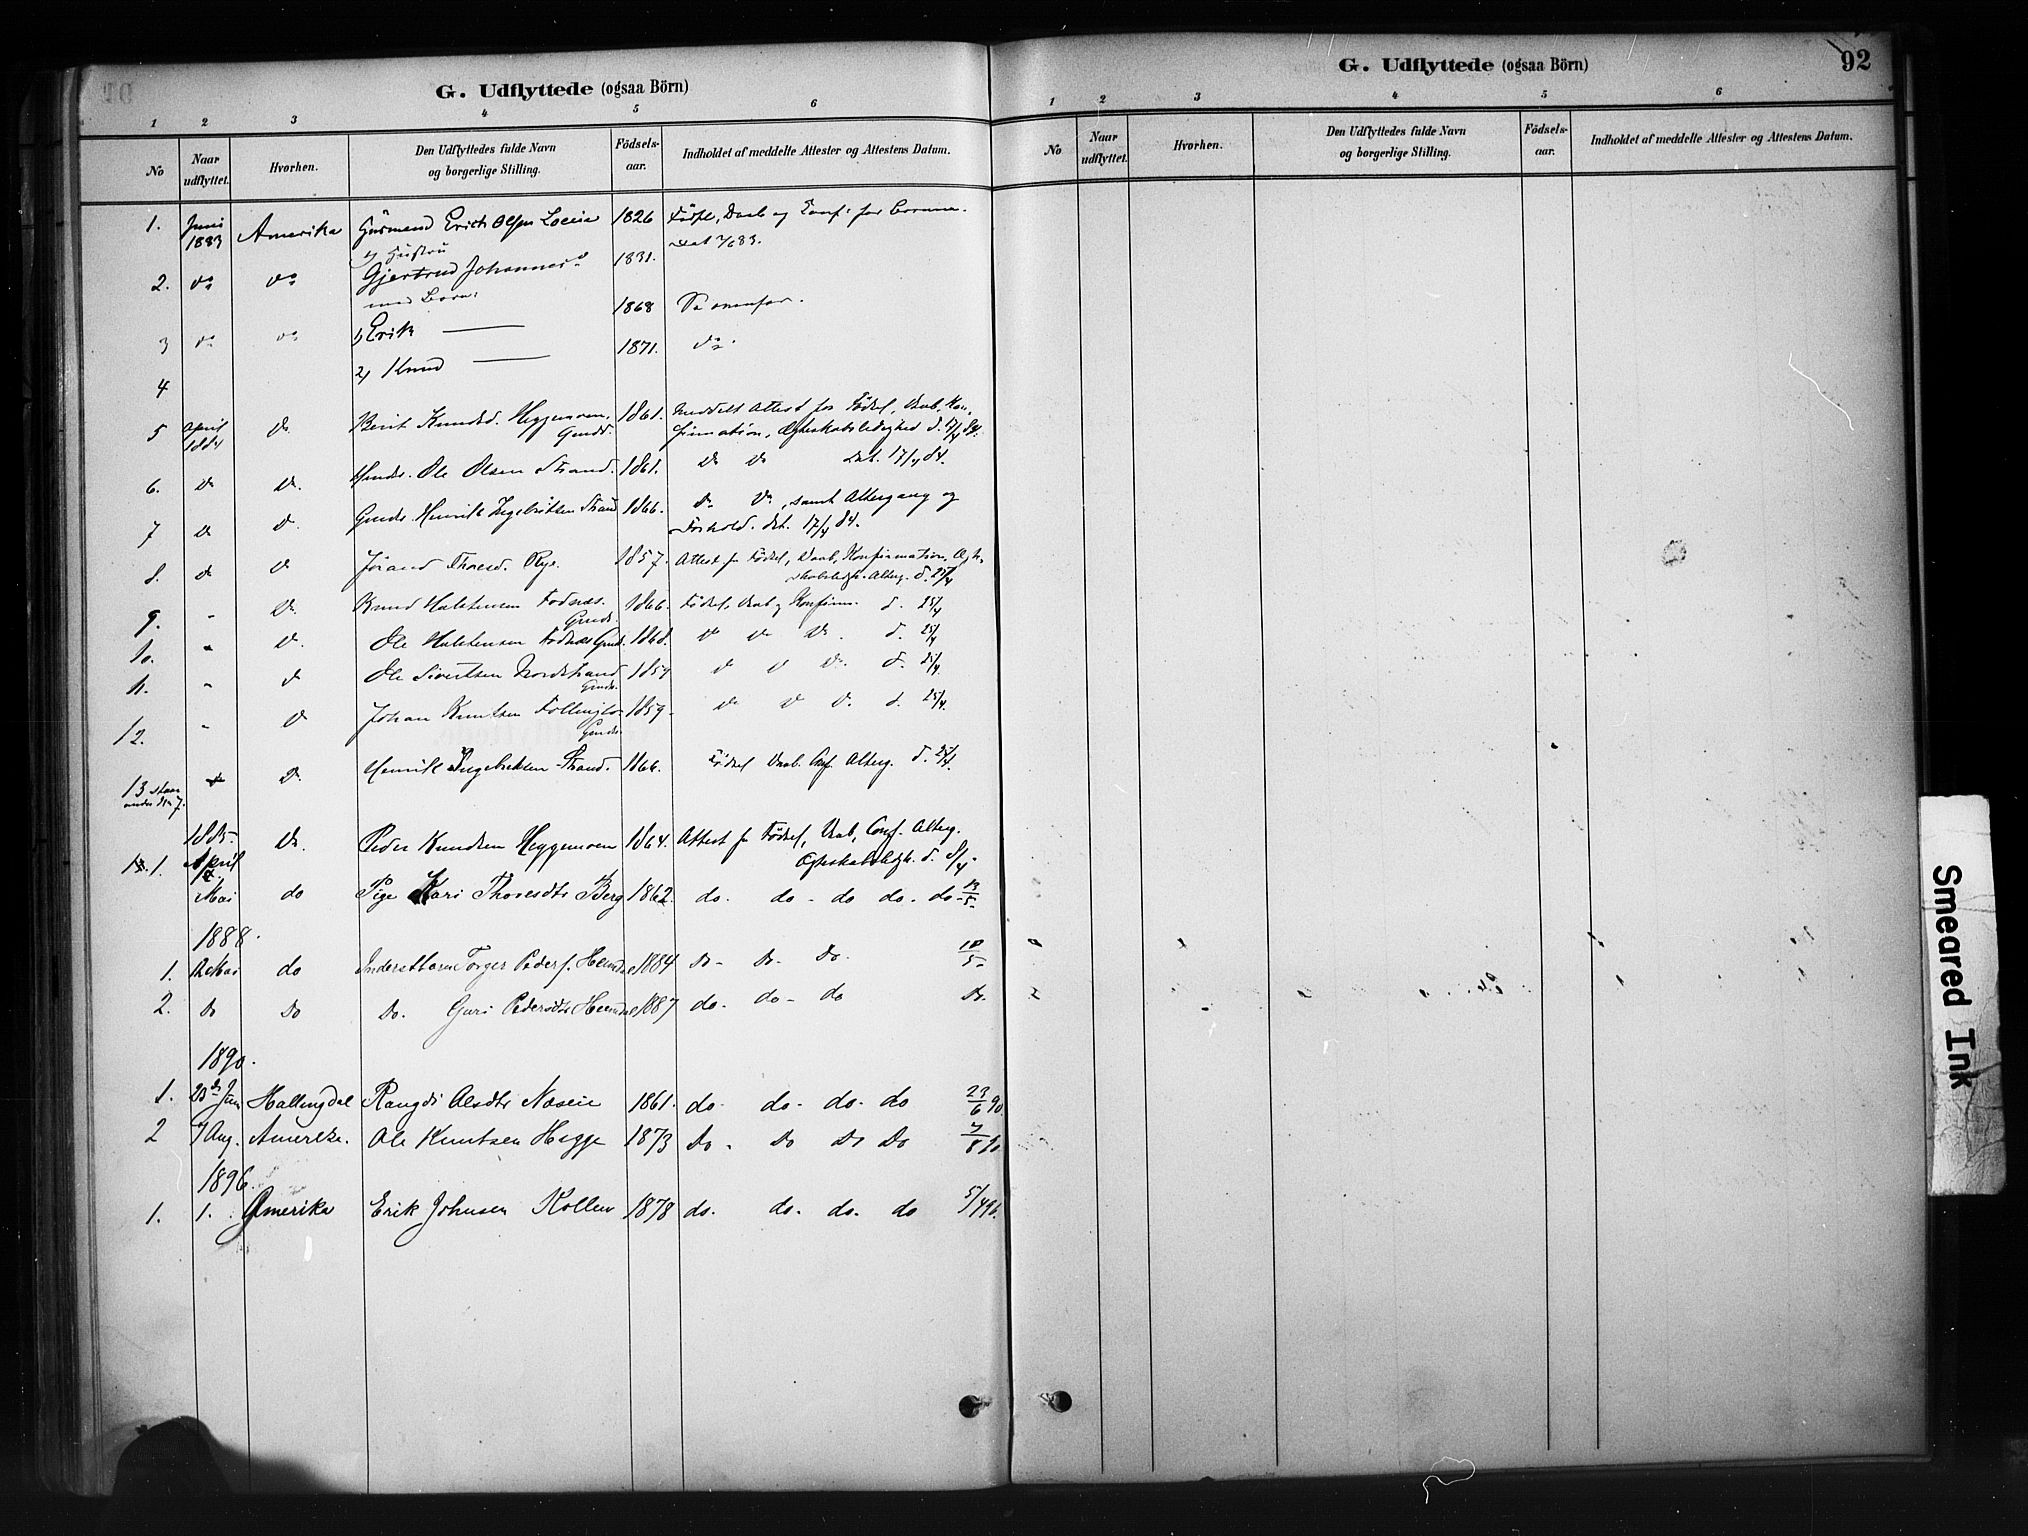 G. Udflyttede (ogsaa Börn)
1 2 3 4 5 6
No Naar udflyttet. Hvorhen. Den Udflyttedes fulde Navn og borgerlige Stilling. Födsels-aar. Indholdet af meddelte Attester og Attestens Datum.
1. Juni 1883 Amerika Gusmand Erick Olsen 1826 Födsl, Daab og Conf: for
og Hustru
2. do do Gjertrud Johannesd 1831.
med Børn:
3 do do 1, Erik — 1868 Se ovenfor.
4 2, Knud — 1871. do.
5 April 1884 do Berit Knudsd. Heggemoen. 1861. Meddelt Attest for Födsel, Daab, Kon-
firmation, Ægteskabsledighed d. 17/4 84.
6. do do. Ole Olsen Strand. 1861. do do Dat. 17/4 84.
7 do do. Henrik Ingebritsen Strand 1866. do do, samt Altergang og
Forhold. dat. 17/4 84.
8. do do Jörand Thoresd. Rye. 1857. Attest for Födsel, Daab, Konfirmation, Ægte-
Alterg. d. 25/4
9. - do Knud Halstensen Fodnæs. 1866. Födsel, Daab og Konfirm. d. 25/4
10. - do. Ole Halstensen Fodnæs 1868. do do do. d. 25/4
11. - do Ole Sivertsen Nordstrand 1859 do do do. d. 25/4.
12. - do Johan Knutsen 1859. do do do. d. 25/4.
13 staar under No 7. do Henrik Ingebriksen Strand. 1866. Födsel Daab. Conf. Alterg. d. 25/4.
1885.
1. April do. Peder Knudsen Heggemoen 1864. Attest for Födsel, Daab, Conf. Alterg.
d. 8/4.
Mai do Pige Kari Thoresdtr Berg 1862. do. do - do do. do - 13/5.
1888.
1. Mai do Torger Peders. 1884 do - do. do. 18/5
2. do do do. Guri Pedersdtr 1887 do. do - do do.
1890.
1. 23de Juni Hallingdal Rangdi Alsdtr Noseie 1861. do. do - do. do 23/6 90.
2 7 Aug. Amerika. Ole Knutsen Hegge 1873 do. do do do 7/8 90.
1896.
1. 1. Amerika Erik Johnsen Kollen 1878 do. do. do. do 5/4 96.
G. Udflyttede (ogsaa Börn)
92
1 2 3 4 5 6
No Naar udflyttet. Hvorhen. Den Udflyttedes fulde Navn og borgerlige Stilling. Födsels-aar. Indholdet af meddelte Attester og Attestens Datum.
Smeared Ink